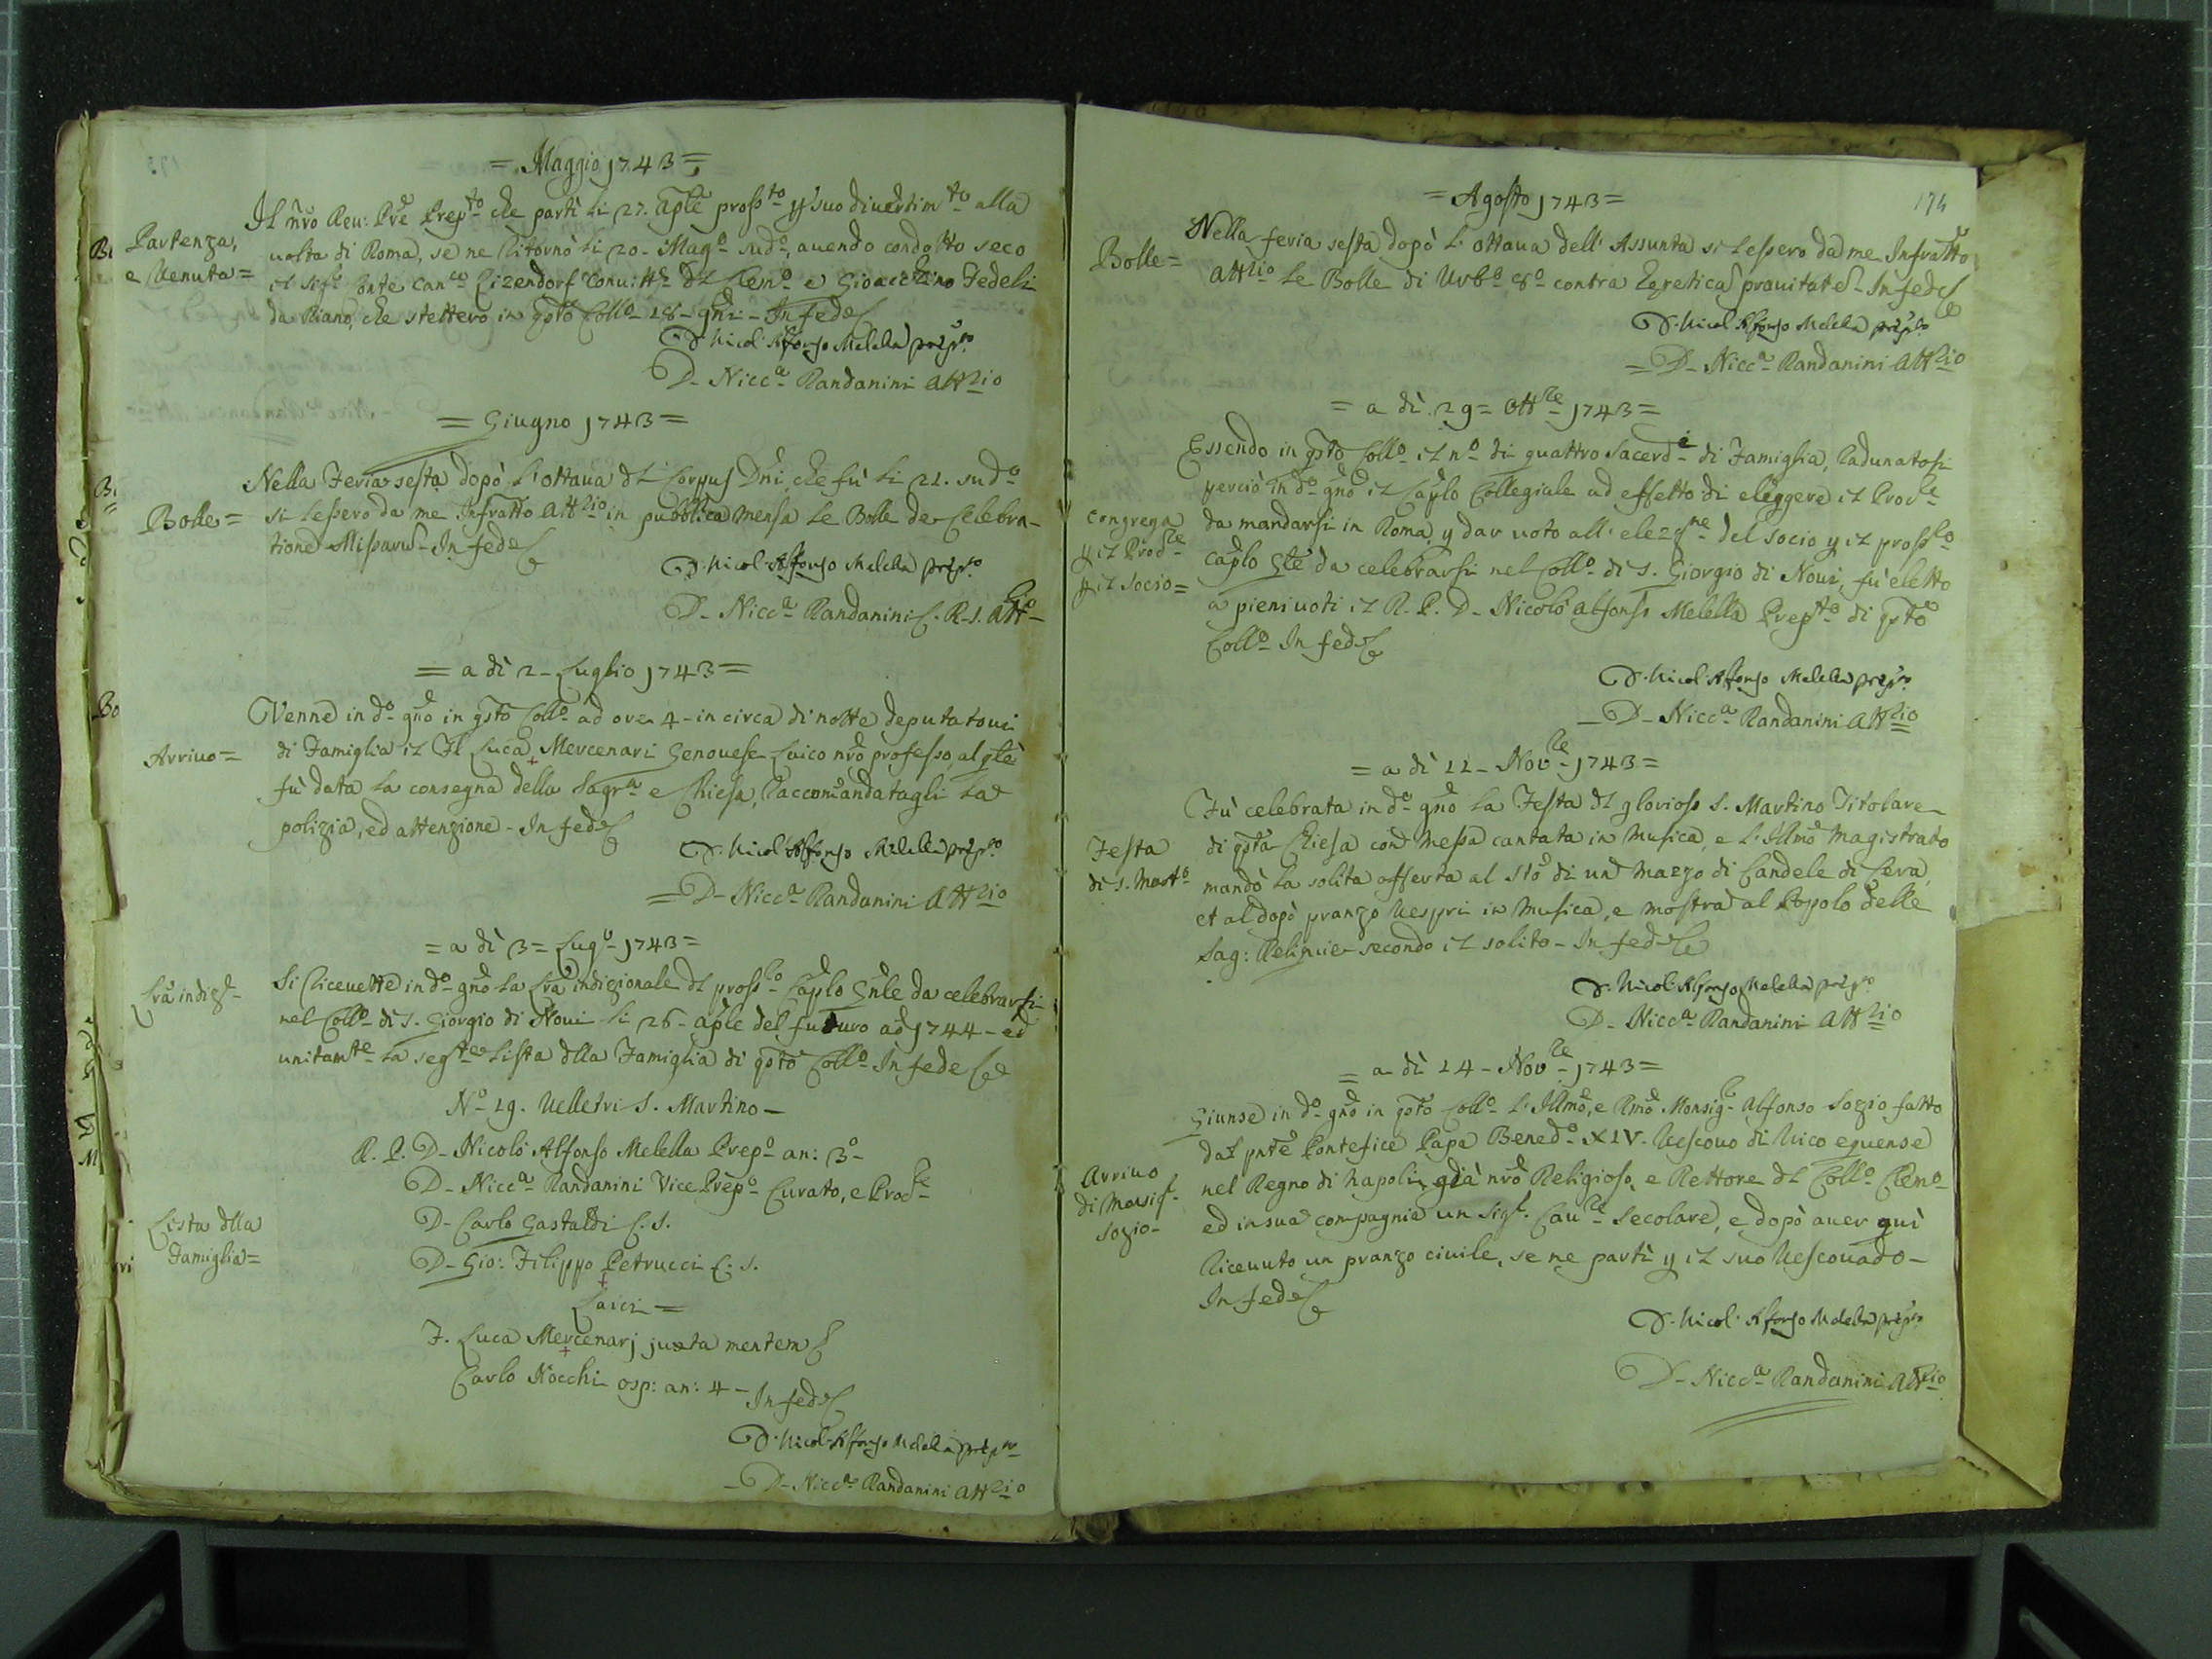 = Maggio 1743 =
Partenza,
e Venuta =
Il nrõ Rev: Prẽ Prepto che partì li 27. Aplẽ prossto p suo divertimto alla
volta di Roma, se ne ritornò li 20 - Mago sudo, avendo condotto seco
il Sigr Conte Canco Lizendorf Convittre dl Clemo e Gioacchino Fedeli
da Riano, che stettero in qstõ Collo - 18 - gni - In fede
D. Nicol' Alfonso Melella prepto
D - Nicca Randanini Attrio
= Giugno 1743 =
Bolle =
Nella Feria sesta dopò l'ottava dl Corpus Dñi, che fù li 21. sudo
si lessero da me Infratto Attrio in pubblica mensa le Bolle de Celebra-
tione Missarũ - In fede
D. Nicol' Alfonso Melella prepto
D - Nicca Randanini C. R. S. Attrio
= a dì 2 - Luglio 1743 =
Arrivo =
Venne in do gnõ in qstõ Collo ad ore 4 - in circa di notte deputatovi
di Famiglia il Fl Luca Mercenari Genovese Laico nrõ professo, al qlẽ
fù data la consegna della Sagra e Chiesa, raccomandatagli la
polizia, ed attenzione - In fede
D. Nicol' Alfonso Melella prepto
= D - Nicca Randanini Attrio
= a dì 3 = Lugo 1743 =
Lrã indizle
Si ricevette in do gnõ la Lrã indizionale dl prosso Caplo Gnle da celebrarsi
nel Collo di S. Giorgio di Novi li 26 - Aple del futuro ao 1744 - ed
unitamte la segte Lista dlla Famiglia di qstõ Collo - In fede
No 19. Velletri S. Martino -
Lista dlla
Famiglia =
R. P. D - Nicolò Alfonso Melella Prepo an: 3o
D - Nicca Randanini Vice Prepo Curato, e Procre
D - Carlo Gastaldi C. S.
D - Gio: Filippo Petrucci C. S.
Laici =
F. Luca Mercenarj juxta mentem
Carlo Nocchi osp: an: 4 -
In fede
D. Nicol' Alfonso Melella prepto
- D - Nicca Randanini Attrio
174
= Agosto 1743 =
Bolle =
Nella feria sesta dopò l'ottava dell'Assunta si lessero da me Infratto
Attrio le Bolle di Urbo 8o contra hereticã pravitatẽ - In fede
D. Nicol' Alfonso Melella prepto
= D - Nicca Randanini Attrio
= a dì 29 = Ottre 1743 =
Congrega
p il Procre
p il Socio =
Essendo in qstõ Collo il no di quattro Sacerdi di Famiglia, radunatosi
perciò in do gnõ il Caplo Collegiale ad effetto di eleggere il Procre
da mandarsi in Roma, p dar voto all'elezne del Socio p il prosso
Caplo Gle da celebrarsi nel Collo di S. Giorgio di Novi, fù eletto
a pieni voti il R. P. D - Nicolò Alfonso Melella Prepto di qstõ
Collo In fede
D. Nicol' Alfonso Melella prepto
- D - Nicca Randanini Attrio
= a dì 11 - Novre 1743 =
Festa
di S. Marto
Fù celebrata in do gnõ la Festa dl glorioso S. Martino Titolare
di qstã Chiesa con Messa cantata in musica, e l'Illmo Magistrato
mandò la solita offerta al Stõ di un mazzo di Candele di Cera,
et al dopò pranzo Vespri in musica, e mostra al Popolo delle
Sag: Reliquie secondo il solito - In fede
D. Nicol' Alfonso Melella prepto
D - Nicca Randanini Attrio
= a dì 14 - Novre 1743 =
Arrivo
di Monsigr
Sozio -
Giunse in do gnõ in qstõ Collo l'Illmo, e Rmo Monsigr Alfonso Sozio fatto
dal pntẽ Pontefice Papa Benedo XIV. Vescovo di Vico equense
nel Regno di Napoli, già nrõ Religioso, e Rettore dl Collo Clemo
ed in sua compagnia un Sigr Cavre Secolare, e dopò aver quì
ricevuto un pranzo civile, se ne partì p il suo Vescovado -
In fede
D. Nicol' Alfonso Melella prepto
D - Nicca Randanini Attrio